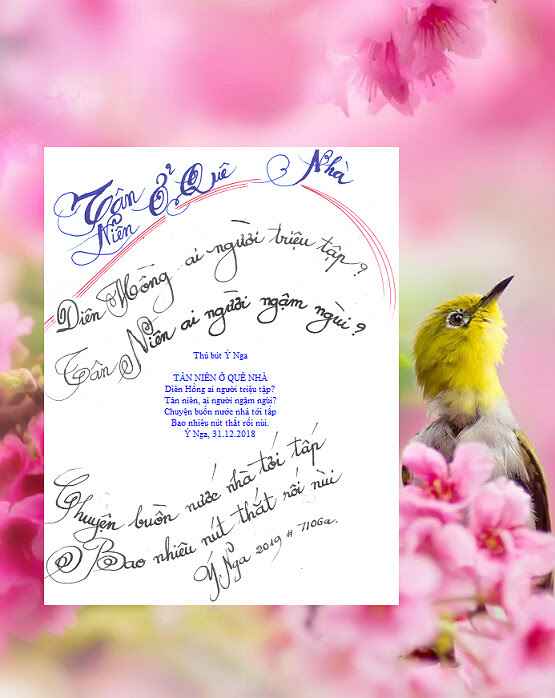 Tân Niên Ở Quê Nhà
Diên Hồng ai người triệu tập?
Tân Niên ai người ngậm ngùi?
Thủ bút Ý Nga
TÂN NIÊN Ở QUÊ NHÀ
Diên Hồng ai người triệu tập?
Tân niên, ai người ngậm ngùi?
Chuyện buồn nước nhà tới tấp
Bao nhiêu nút thắt rối nùi.
Ý Nga, 31.12.2018
Chuyện buồn nước nhà tới tấp
Bao nhiêu nút thắt rối nùi
Ý Nga 2019 #